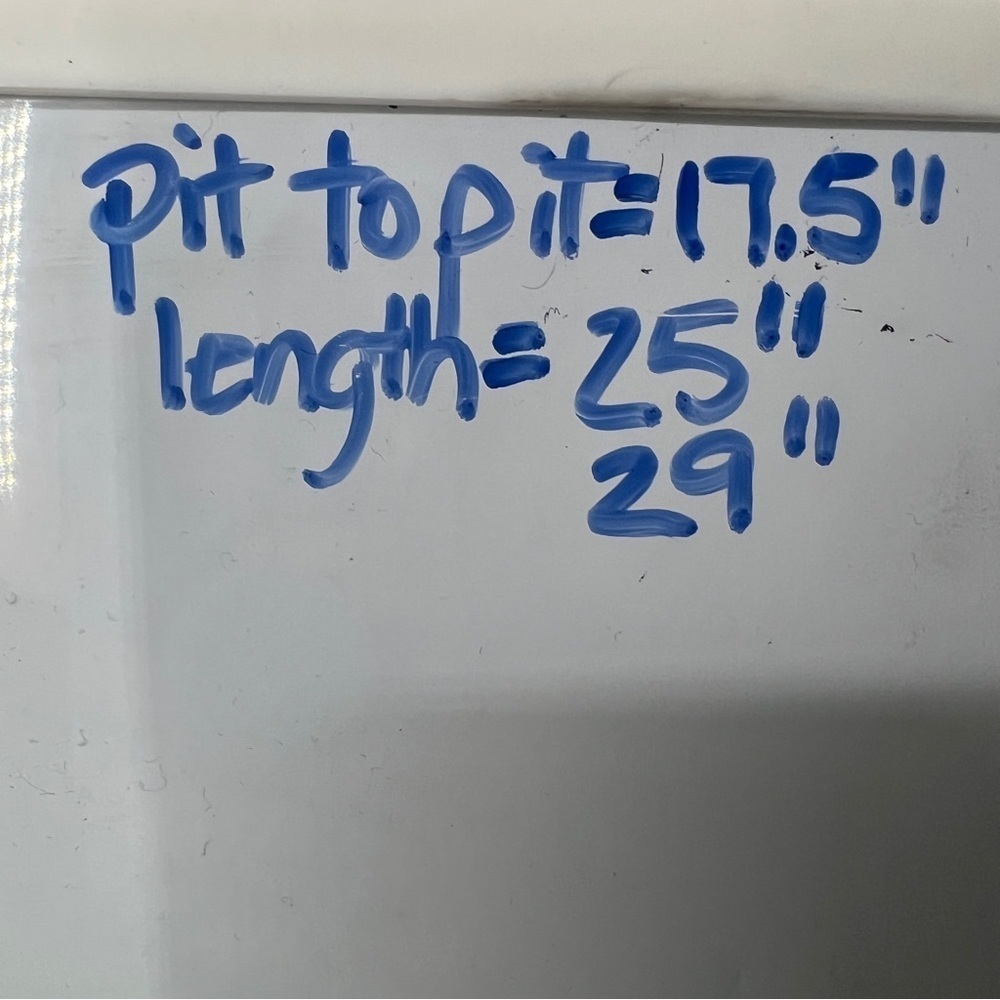 pit to pit=17.5"
length= 25"
29"